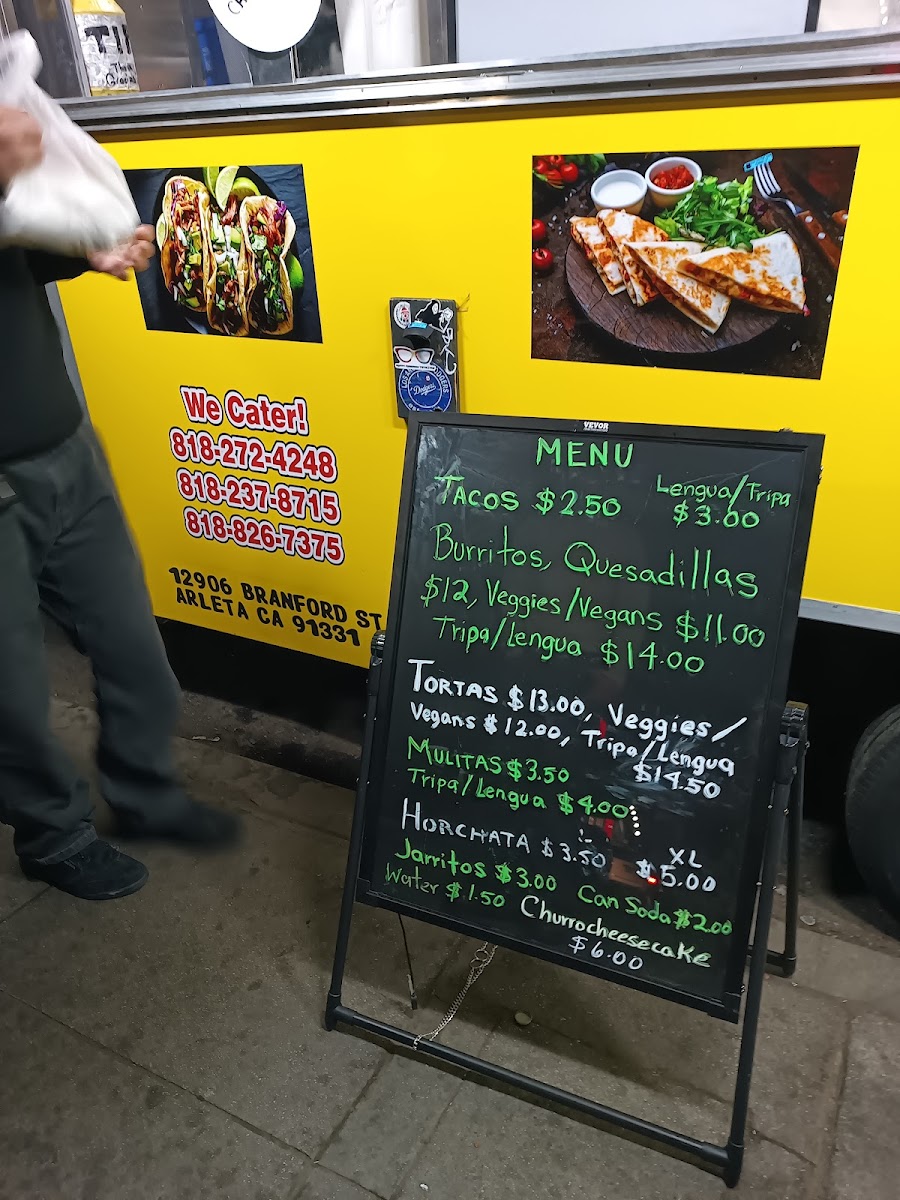 We Cater!
818-272-4248
818-237-8715
818-826-7375
12906 BRANFORD ST
ARLETA CA 91331
Dodgers
VEVOR
MENU
TACOS $2.50
Lengua/Tripa
$3.00
Burritos, Quesadillas
$12, Veggies/Vegans $11.00
Tripa/Lengua $14.00
TORTAS $13.00, Veggies/
Vegans $12.00, Tripa/Lengua
$14.50
MULITAS $3.50
Tripa/Lengua $4.00
HORCHATA $3.50
XL
$5.00
Jarritos $3.00
Can Soda $2.00
Water $1.50
Churrocheesecake
$6.00